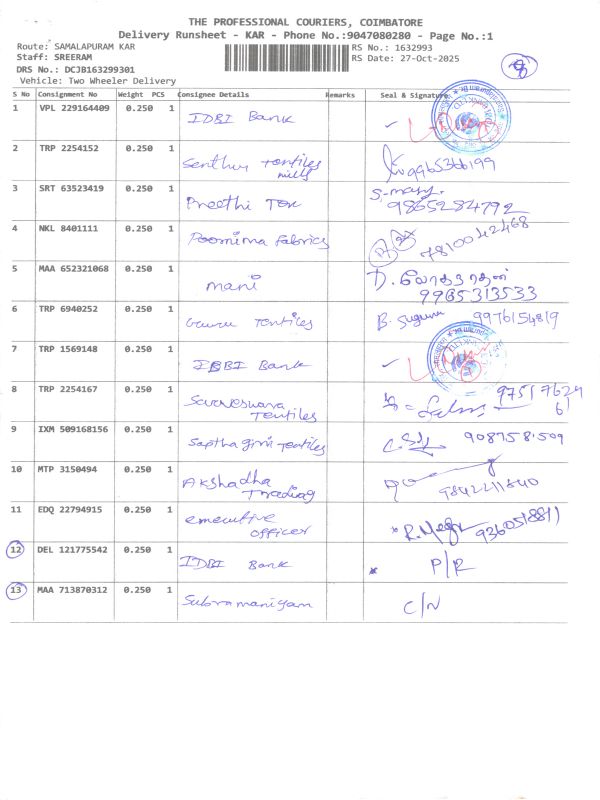 THE PROFESSIONAL COURIERS, COIMBATORE
Delivery Runsheet - KAR - Phone No.:9047080280 - Page No.:1
Route: SAMALAPURAM KAR RS No.: 1632993
Staff: SREERAM RS Date: 27-Oct-2025
DRS No.: DCJB163299301
Vehicle: Two Wheeler Delivery
S No Consignment No Weight PCS Consignee Details Remarks Seal & Signature
1 VPL 229164409 0.250 1 IDBI Bank
2 TRP 2254152 0.250 1 Senthur Textiles mills 9965366199
3 SRT 63523419 0.250 1 Preethi Tex S. mary. 9865284792
4 NKL 8401111 0.250 1 Poornima Fabrics 7810042468
5 MAA 652321068 0.250 1 mani D. லோகநாதன் 9965313533
6 TRP 6940252 0.250 1 Guru Textiles B. Suguna 9976154819
7 TRP 1569148 0.250 1 IDBI Bank
8 TRP 2254167 0.250 1 Saraswana Textiles 97517624 61
9 IXM 509168156 0.250 1 Saptha giri Textiles 9087581509
10 MTP 3150494 0.250 1 AKshadha Trading 9842211840
11 EDQ 22794915 0.250 1 executive officer 9360518811
12 DEL 121775542 0.250 1 IDBI Bank P/R
13 MAA 713870312 0.250 1 Subramaniyam C/N